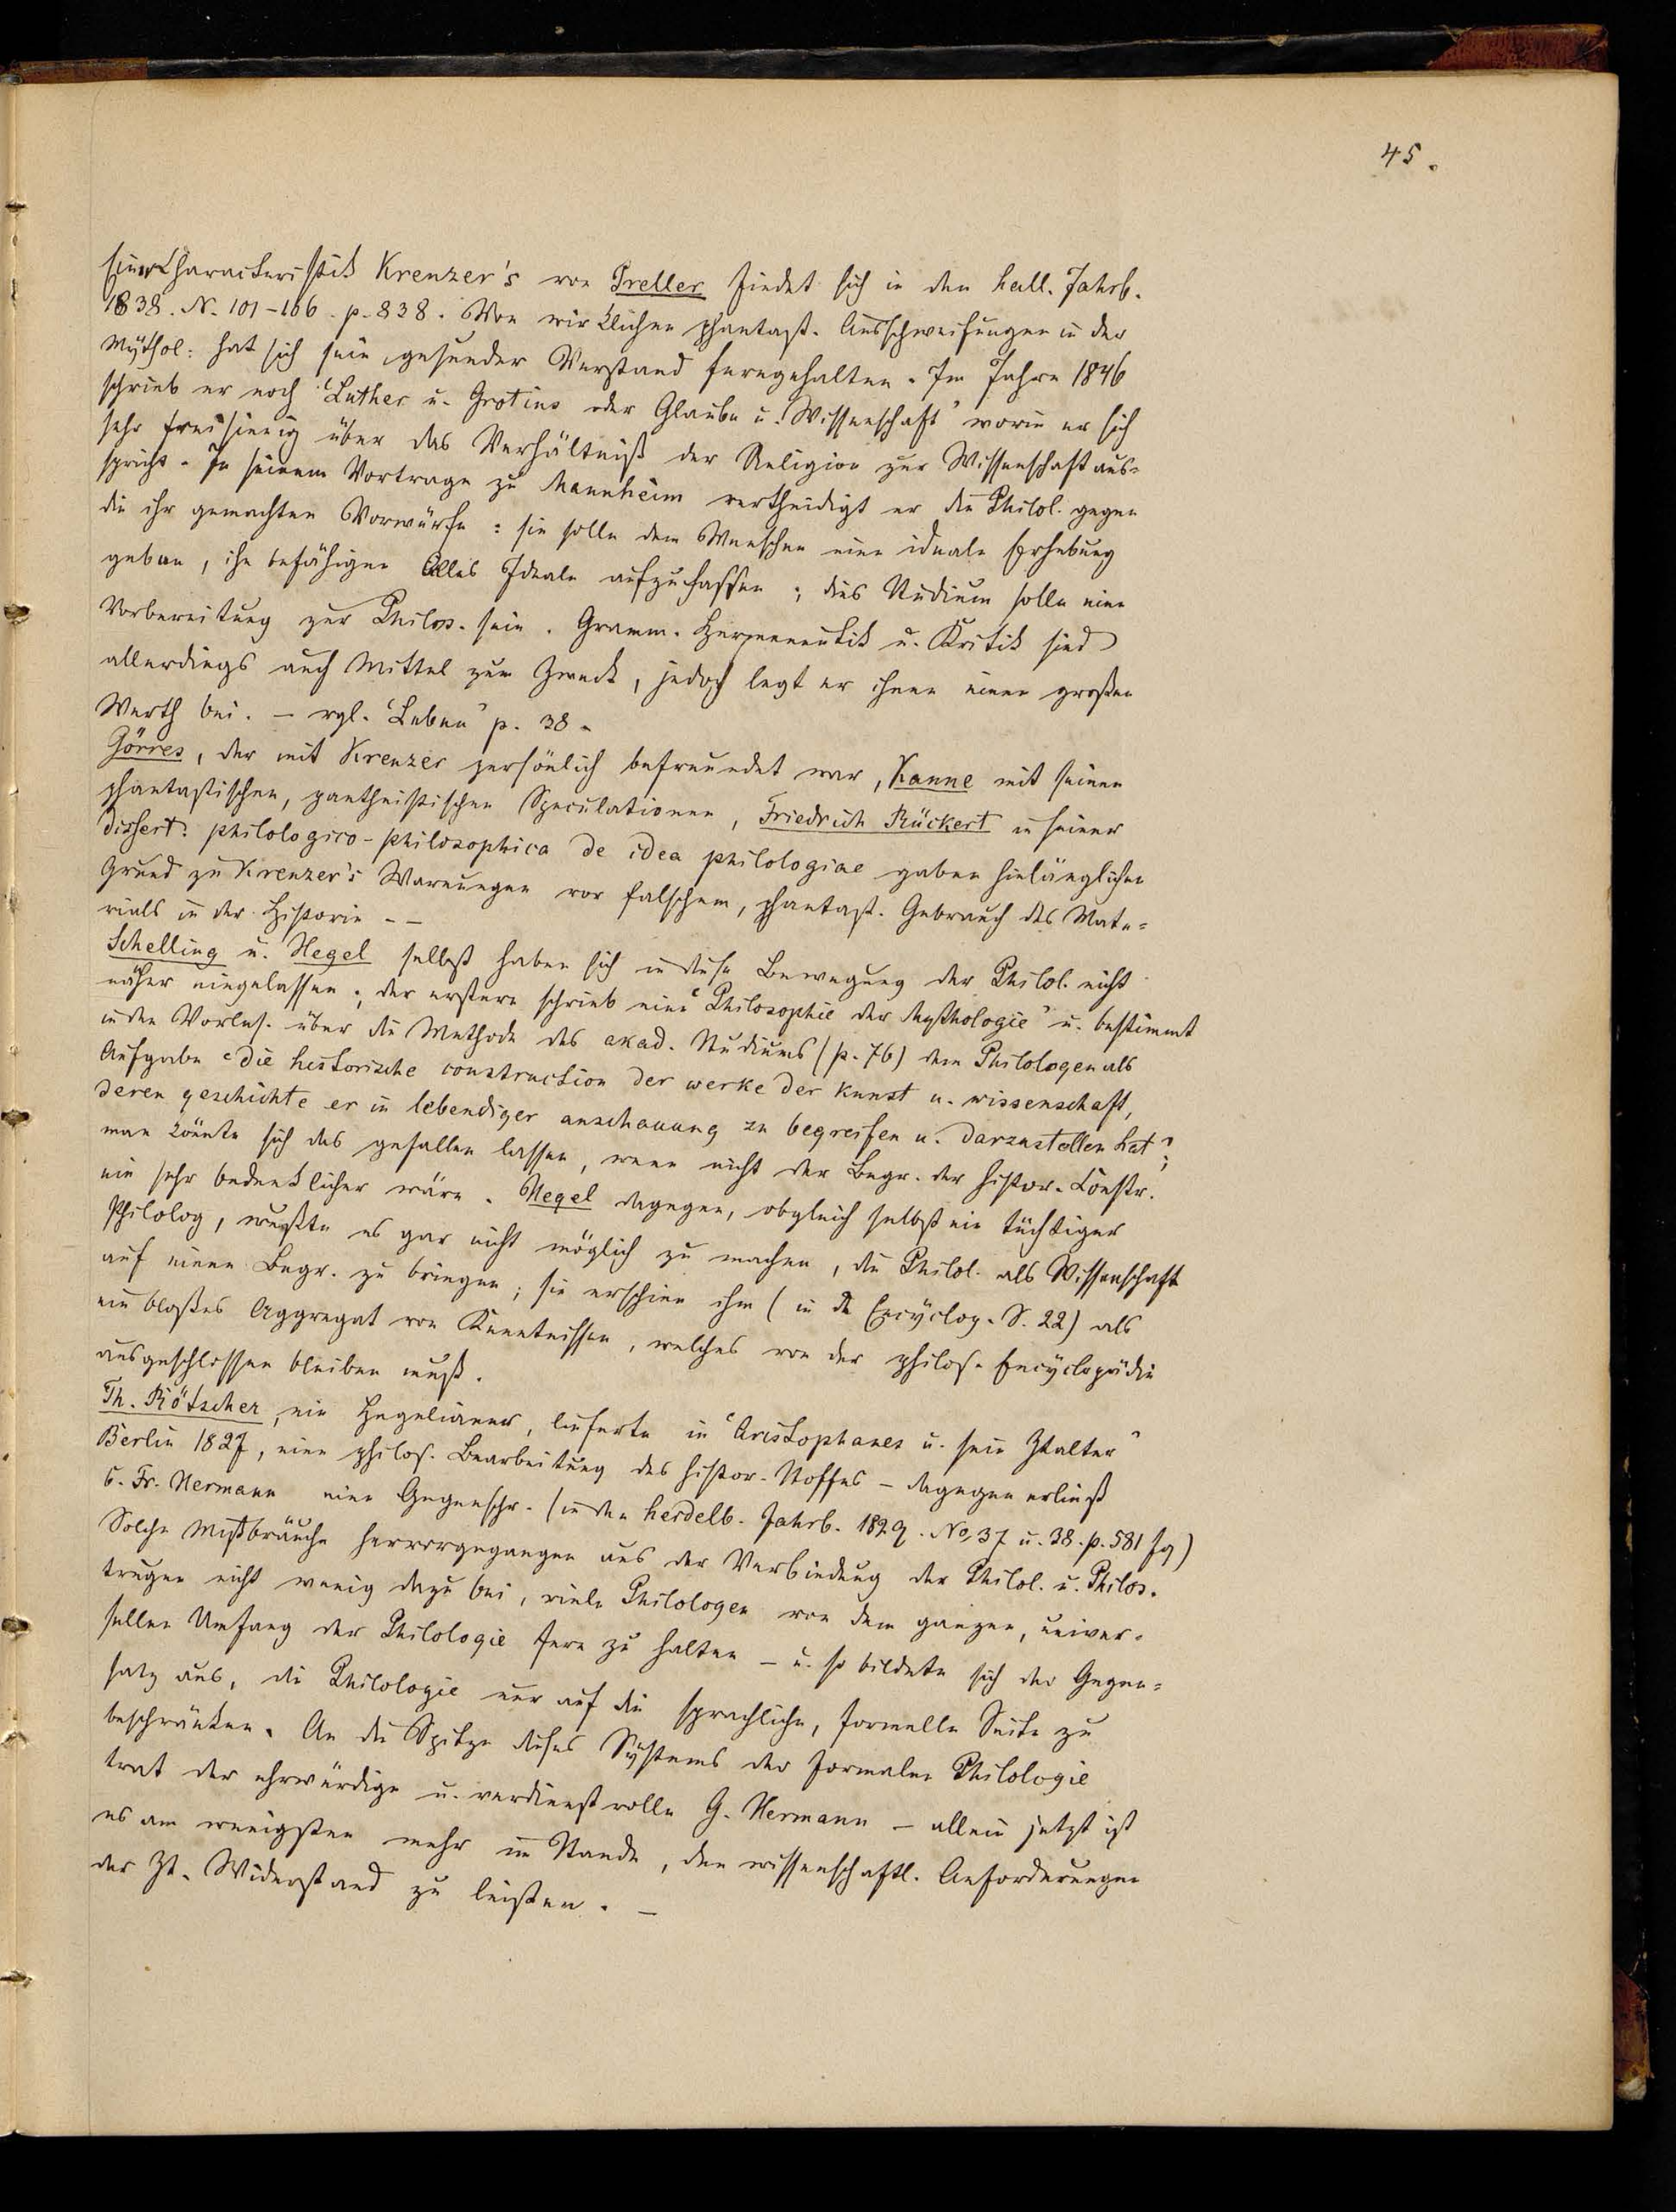 45.
Eine Characteristik Kreuzer's von Preller findet sich in den hall. Jahrb.
1838. N. 101-106. p. 838. Von wirklichen phantast. Ausschweifungen in der
Mythol. hat sich sein gesunder Verstand ferngehalten. Im Jahre 1846
schrieb er noch "Luther u. Grotius oder Glaube u. Wissenschaft" worin er sich
sehr freisinnig über das Verhältniß der Religion zur Wissenschaft aus-
spricht. In seinem Vortrage zu Mannheim vertheidigt er die Philol. gegen
die ihr gemachten Vorwürfe: sie solle dem Menschen eine ideale Erhebung
geben, ihn befähigen alles Ideale aufzufassen; dies Studium solle eine
Vorbereitung zur Philos. sein. Gramm. Hermeneutik u. Kritik sind
allerdings auch Mittel zum Zweck, jedoch legt er ihnen einen großen
Werth bei. – vgl. "Leben" p. 38.
Görres, der mit Kreuzer persönlich befreundet war, Kanne mit seinen
phantastischen, pantheistischen Speculationen, Friedrich Rückert in seiner
dissert. philologico-philosophica de idea philologiae gaben hinlänglichen
Grund zu Kreuzer's Warnungen vor falschem, phantast. Gebrauch des Mate-
rials in der Historie. –
Schelling u. Hegel selbst haben sich in diese Bewegung der Philol. nicht
näher eingelassen; der erstere schrieb eine "Philosophie der Mythologie" u. bestimmt
in den Vorles. über die Methode des akad. Studiums (p. 76) dem Philologen als
Aufgabe "die historische construction der werke der kunst u. wissenschaft,
deren geschichte er in lebendiger anschauung zu begreifen u. darzustellen hat";
man könnte sich das gefallen lassen, wenn nicht der Begr. der histor. Constr.
ein sehr bedenklicher wäre. Hegel dagegen, obgleich selbst ein tüchtiger
Philolog, wußte es gar nicht möglich zu machen, die Philol. als Wissenschaft
auf einen Begr. zu bringen; sie erschien ihm (in d. Encyclop. S. 22) als
ein bloßes Aggregat von Kenntnissen, welches von der philos. Encyclopädie
ausgeschlossen bleiben muß.
Th. Rötscher, ein Hegelianer, lieferte in "Aristophanes u. sein Ztalter"
Berlin 1827, eine philos. Bearbeitung des histor. Stoffes – dagegen erließ
C. Fr. Hermann eine Gegenschr. (in den heidelb. Jahrb. 1829. No 37 u. 38. p. 581 fg)
Solche Mißbräuche hervorgegangen aus der Verbindung der Philol. u. Philos.
trugen nicht wenig dazu bei, viele Philologen von dem ganzen, univer-
sellen Umfang der Philologie fern zu halten – u. so bildete sich der Gegen-
satz aus, die Philologie nur auf die sprachliche, formelle Seite zu
beschränken. An die Spitze dieses Systems der formalen Philologie
trat der ehrwürdige u. verdienstvolle G. Hermann – allein jetzt ist
es am wenigsten mehr im Stande, den wissenschaftl. Anforderungen
der Zt. Widerstand zu leisten. –